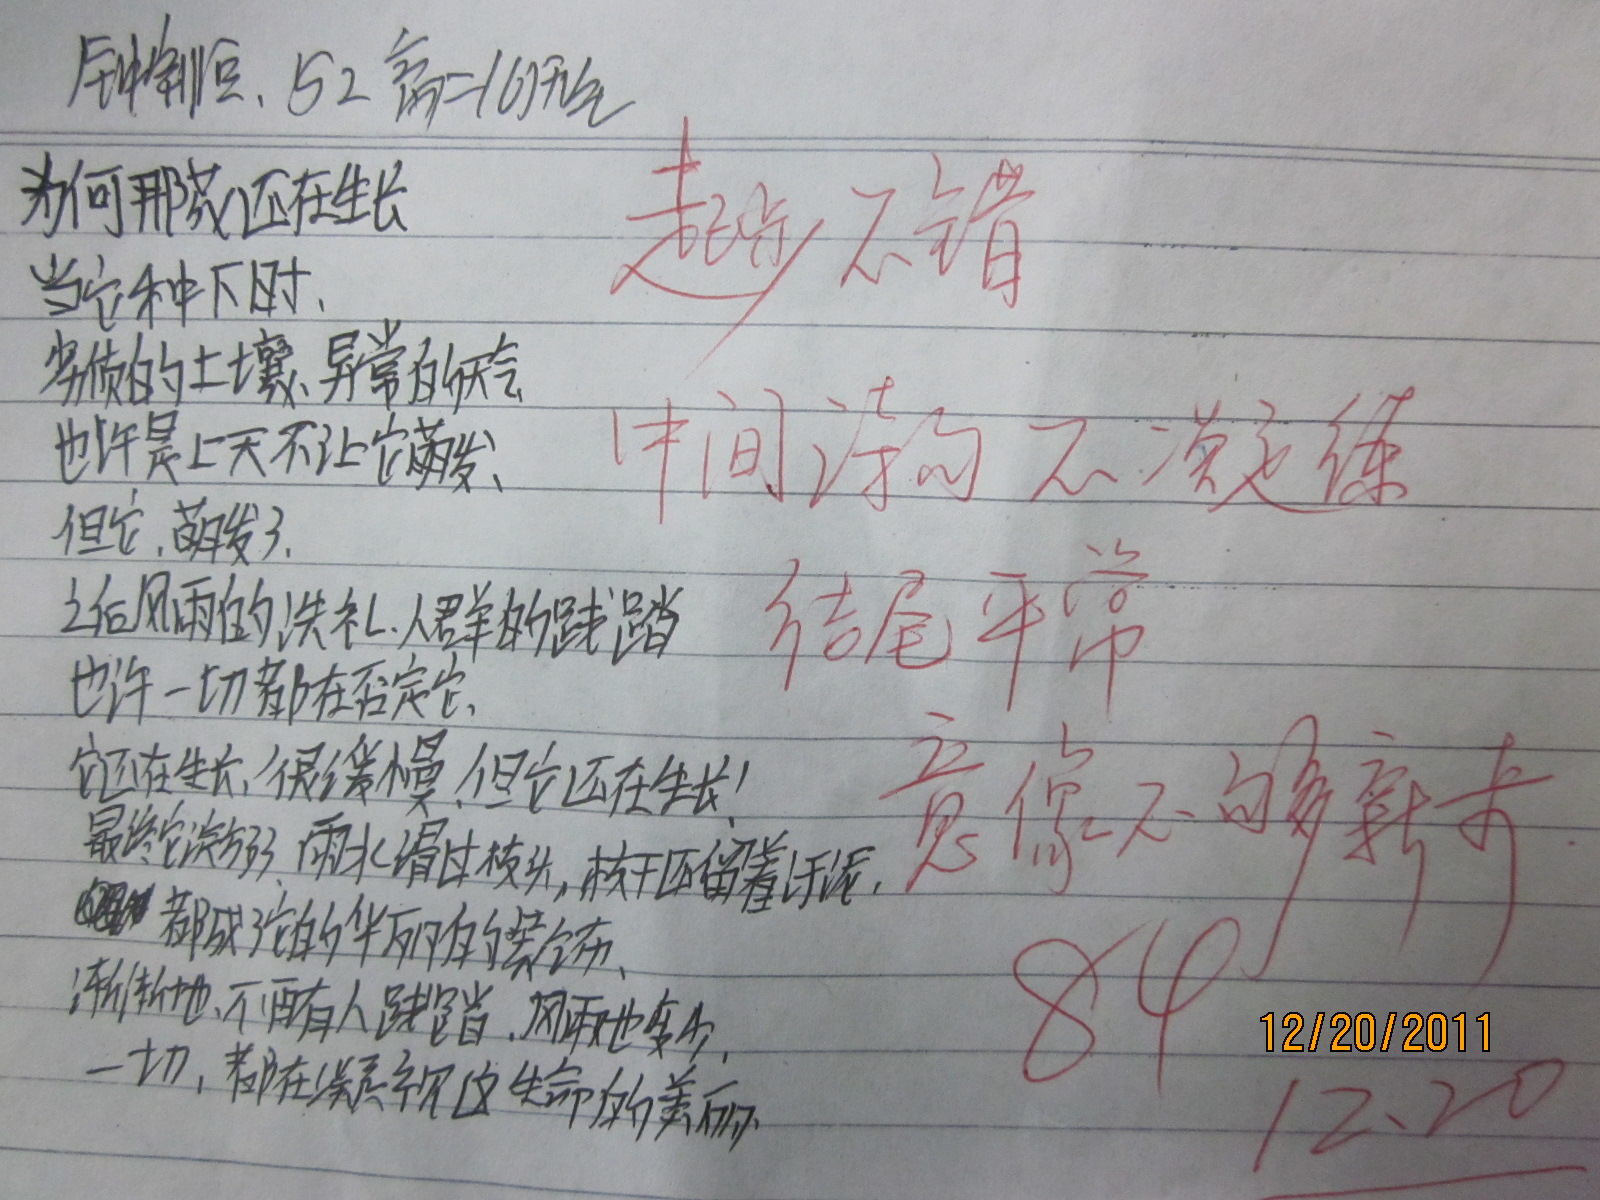 52 高二(6)
为何那花还在生长
当它种下时、
劣质的土壤、异常的天气
也许是上天不让它萌发、
但它、萌发了、
之后风雨的洗礼、人群的践踏
也许一切都在否定它、
它还在生长、很缓慢、但它还在生长!
最终它没有 雨水滑过枝头, 枝干还留着污泥,
都成了它的华丽的装饰、
渐渐地、不再有人践踏、风雨也变少、
一切, 都在凝视这生命的美丽、
趙 不错
中间诗句不凝练
结尾平常
意像不够新卡
84
12/20/2011
12.20